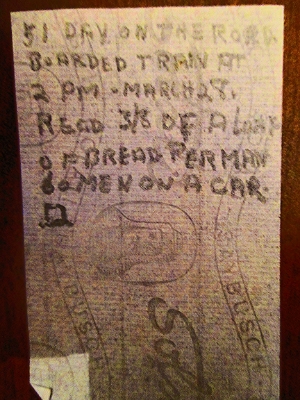 51 DAY ON THE ROAD
BOARDED TRAIN AT
2 PM. MARCH 28.
READ 3/8 OF A LOAF
OF BREAD PER MAN
60 MEN ON A CAR.
SANBUSCH